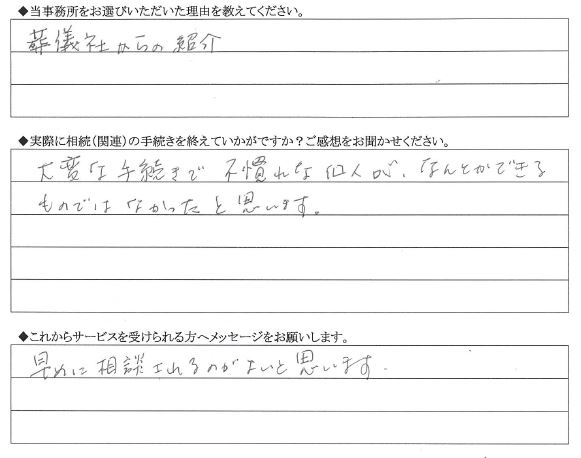 ◆当事務所をお選びいただいた理由を教えてください。
葬儀社からの紹介
◆実際に相続(関連)の手続きを終えていかがですか?ご感想をお聞かせください。
大変な手続きで不慣れな個人が、なんとかできる
ものではなかったと思います。
◆これからサービスを受けられる方へメッセージをお願いします。
早めに相談されるのがよいと思います.